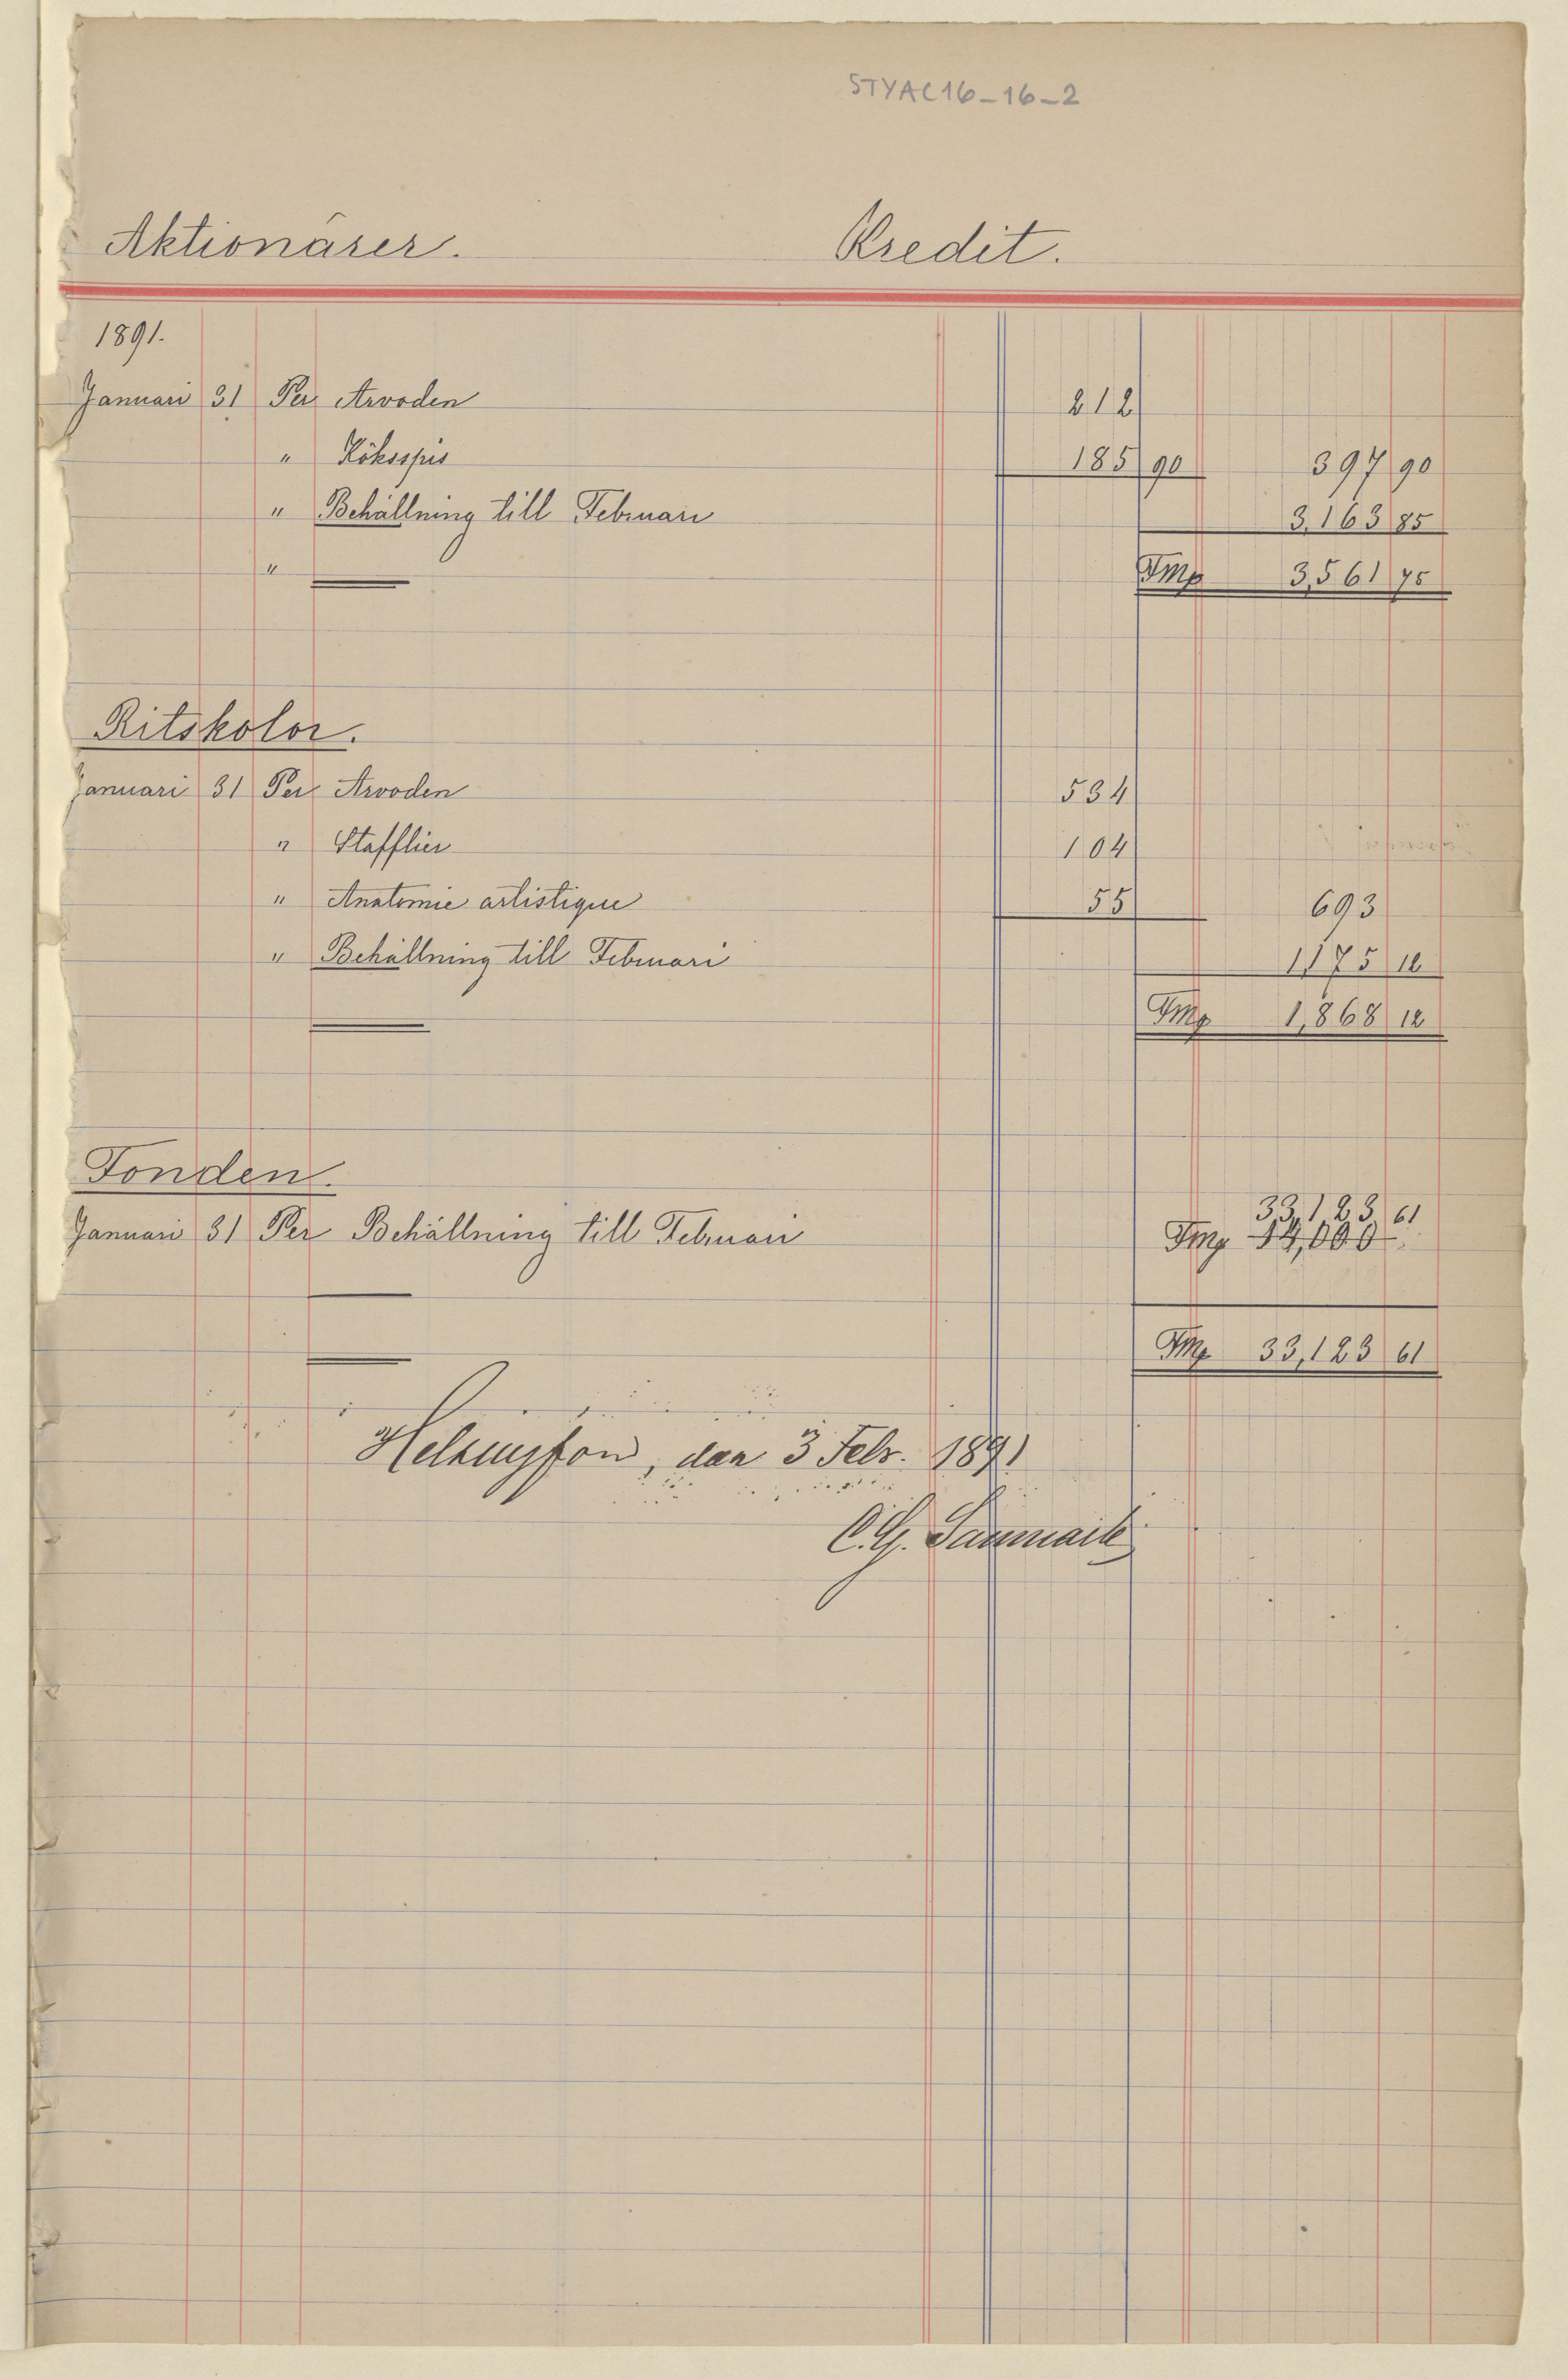 STYAC16-16-2
Aktionärer. Kredit.
1891.
Januari 31 Per Arvoden 212
" Köksspis 185 90 397 90
" Behållning till Februari 3,163 85
" Fmp 3,561 75
Ritskolor.
Januari 31 Per Arvoden 534
" Stafflier 104
" Anatomie artistique 55 693
" Behållning till Februari 1,175 12
Fmp 1,868 12
Fonden.
33,123 61
Januari 31 Per Behållning till Februari Fmp 14,000
Fmp 33,123 61
Helsingfors, den 3 Febr. 1891
C. G. Sanmark